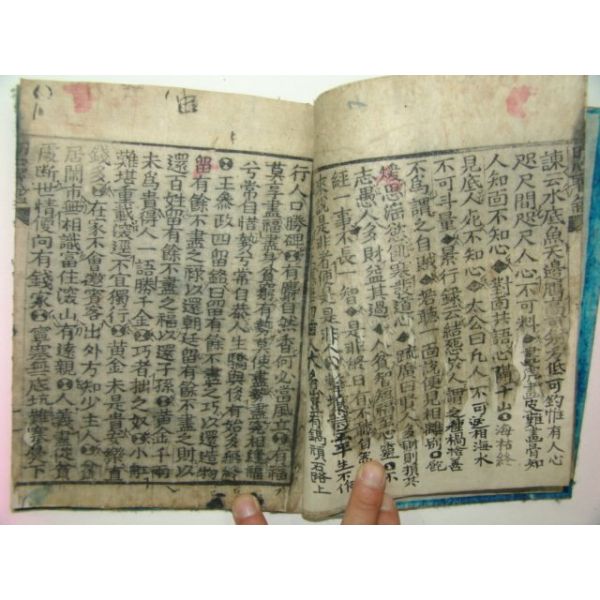 諫云水底魚天邊鴈高可射低可釣惟有人心
咫尺間咫尺人心不可料 畫虎畫皮難畫骨知
人知面不知心 對面共語心隔千山 海枯終
見底人死不知心 太公曰凡人不可相海水
不可斗量 景行錄云結怨於人謂之種禍捨善
不爲謂之自賊 若聽一面說便見相離別 飽
煖思淫慾飢寒非道心 疏廣曰賢人多財則損其
志愚人多財益其過 人貧智短福至心靈 不
經一事不長一智 是非終日有不聽自然
來說是非者便是是非人 平生不作
有鐫頑石路上
行人口勝碑 有麝自然香何必當風立 有福
莫享盡福盡身貧窮有勢莫使盡勢盡寃相逢福
兮常自惜勢兮常自恭人生驕與侈有始多無終
王參政四留銘曰留有餘不盡之巧以還造物
留有餘不盡之祿以還朝廷留有餘不盡之財以
還百姓留有餘不盡之福以還子孫 黃金千兩
未爲貴得人一語勝千金 巧者拙之奴 小船
難堪重載深逕不宜獨行 黃金未是貴安樂直
錢多 在家不會邀賓客出外方知少主人 貧
居鬧市無相識富住深山有遠親 人義盡從貧
處斷世情便向有錢家 寧塞無底坑難塞鼻下